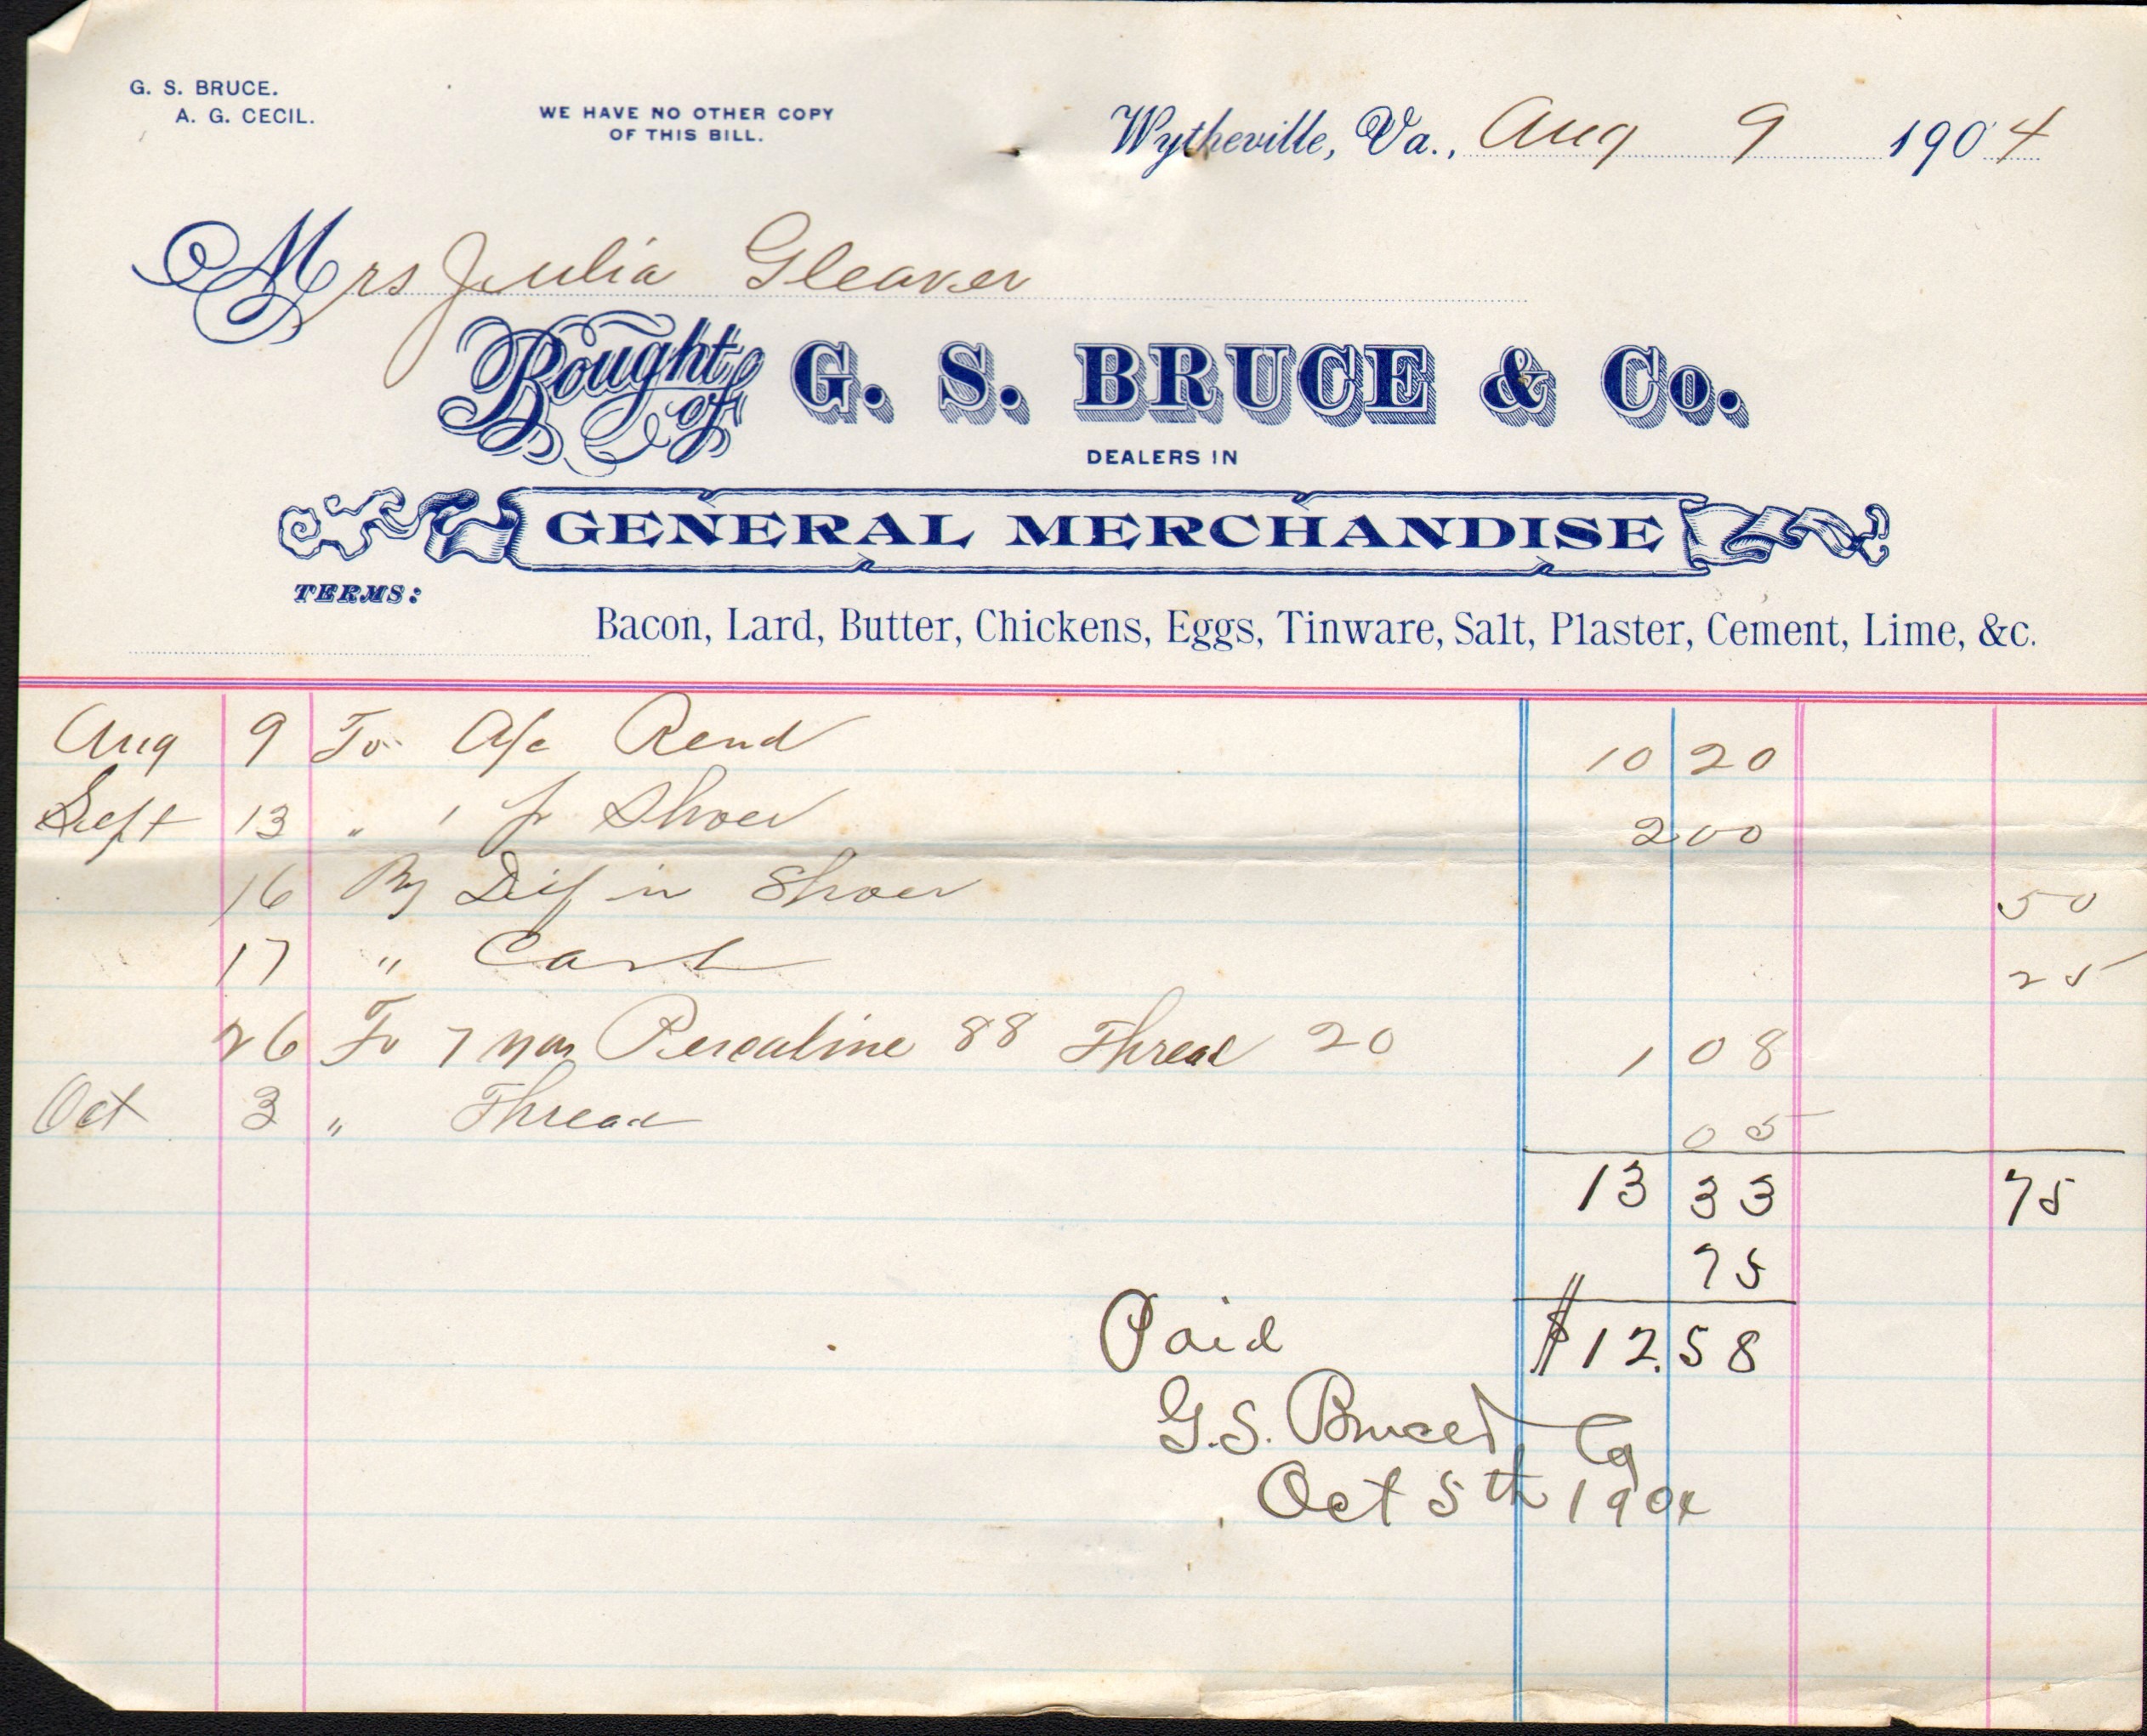 G. S. BRUCE.
A. G. CECIL.
WE HAVE NO OTHER COPY
OF THIS BILL.
Wytheville, Va., Aug 9 1904
Mrs Julia Gleaver
Bought of G. S. BRUCE & Co.
DEALERS IN
GENERAL MERCHANDISE
TERMS:
Bacon, Lard, Butter, Chickens, Eggs, Tinware, Salt, Plaster, Cement, Lime, &c.
Aug 9 To A/c Rend 10 20
Sept 13 " 1 pr Shoes 2 00
16 By Dif in Shoes 50
17 " Cash 25
26 To 7 yds Percaline 88 Thread 20 1 08
Oct 3 " Thread 05
13 33 75
75
Paid $12.58
G.S. Bruce & Co
Oct 5th 1904